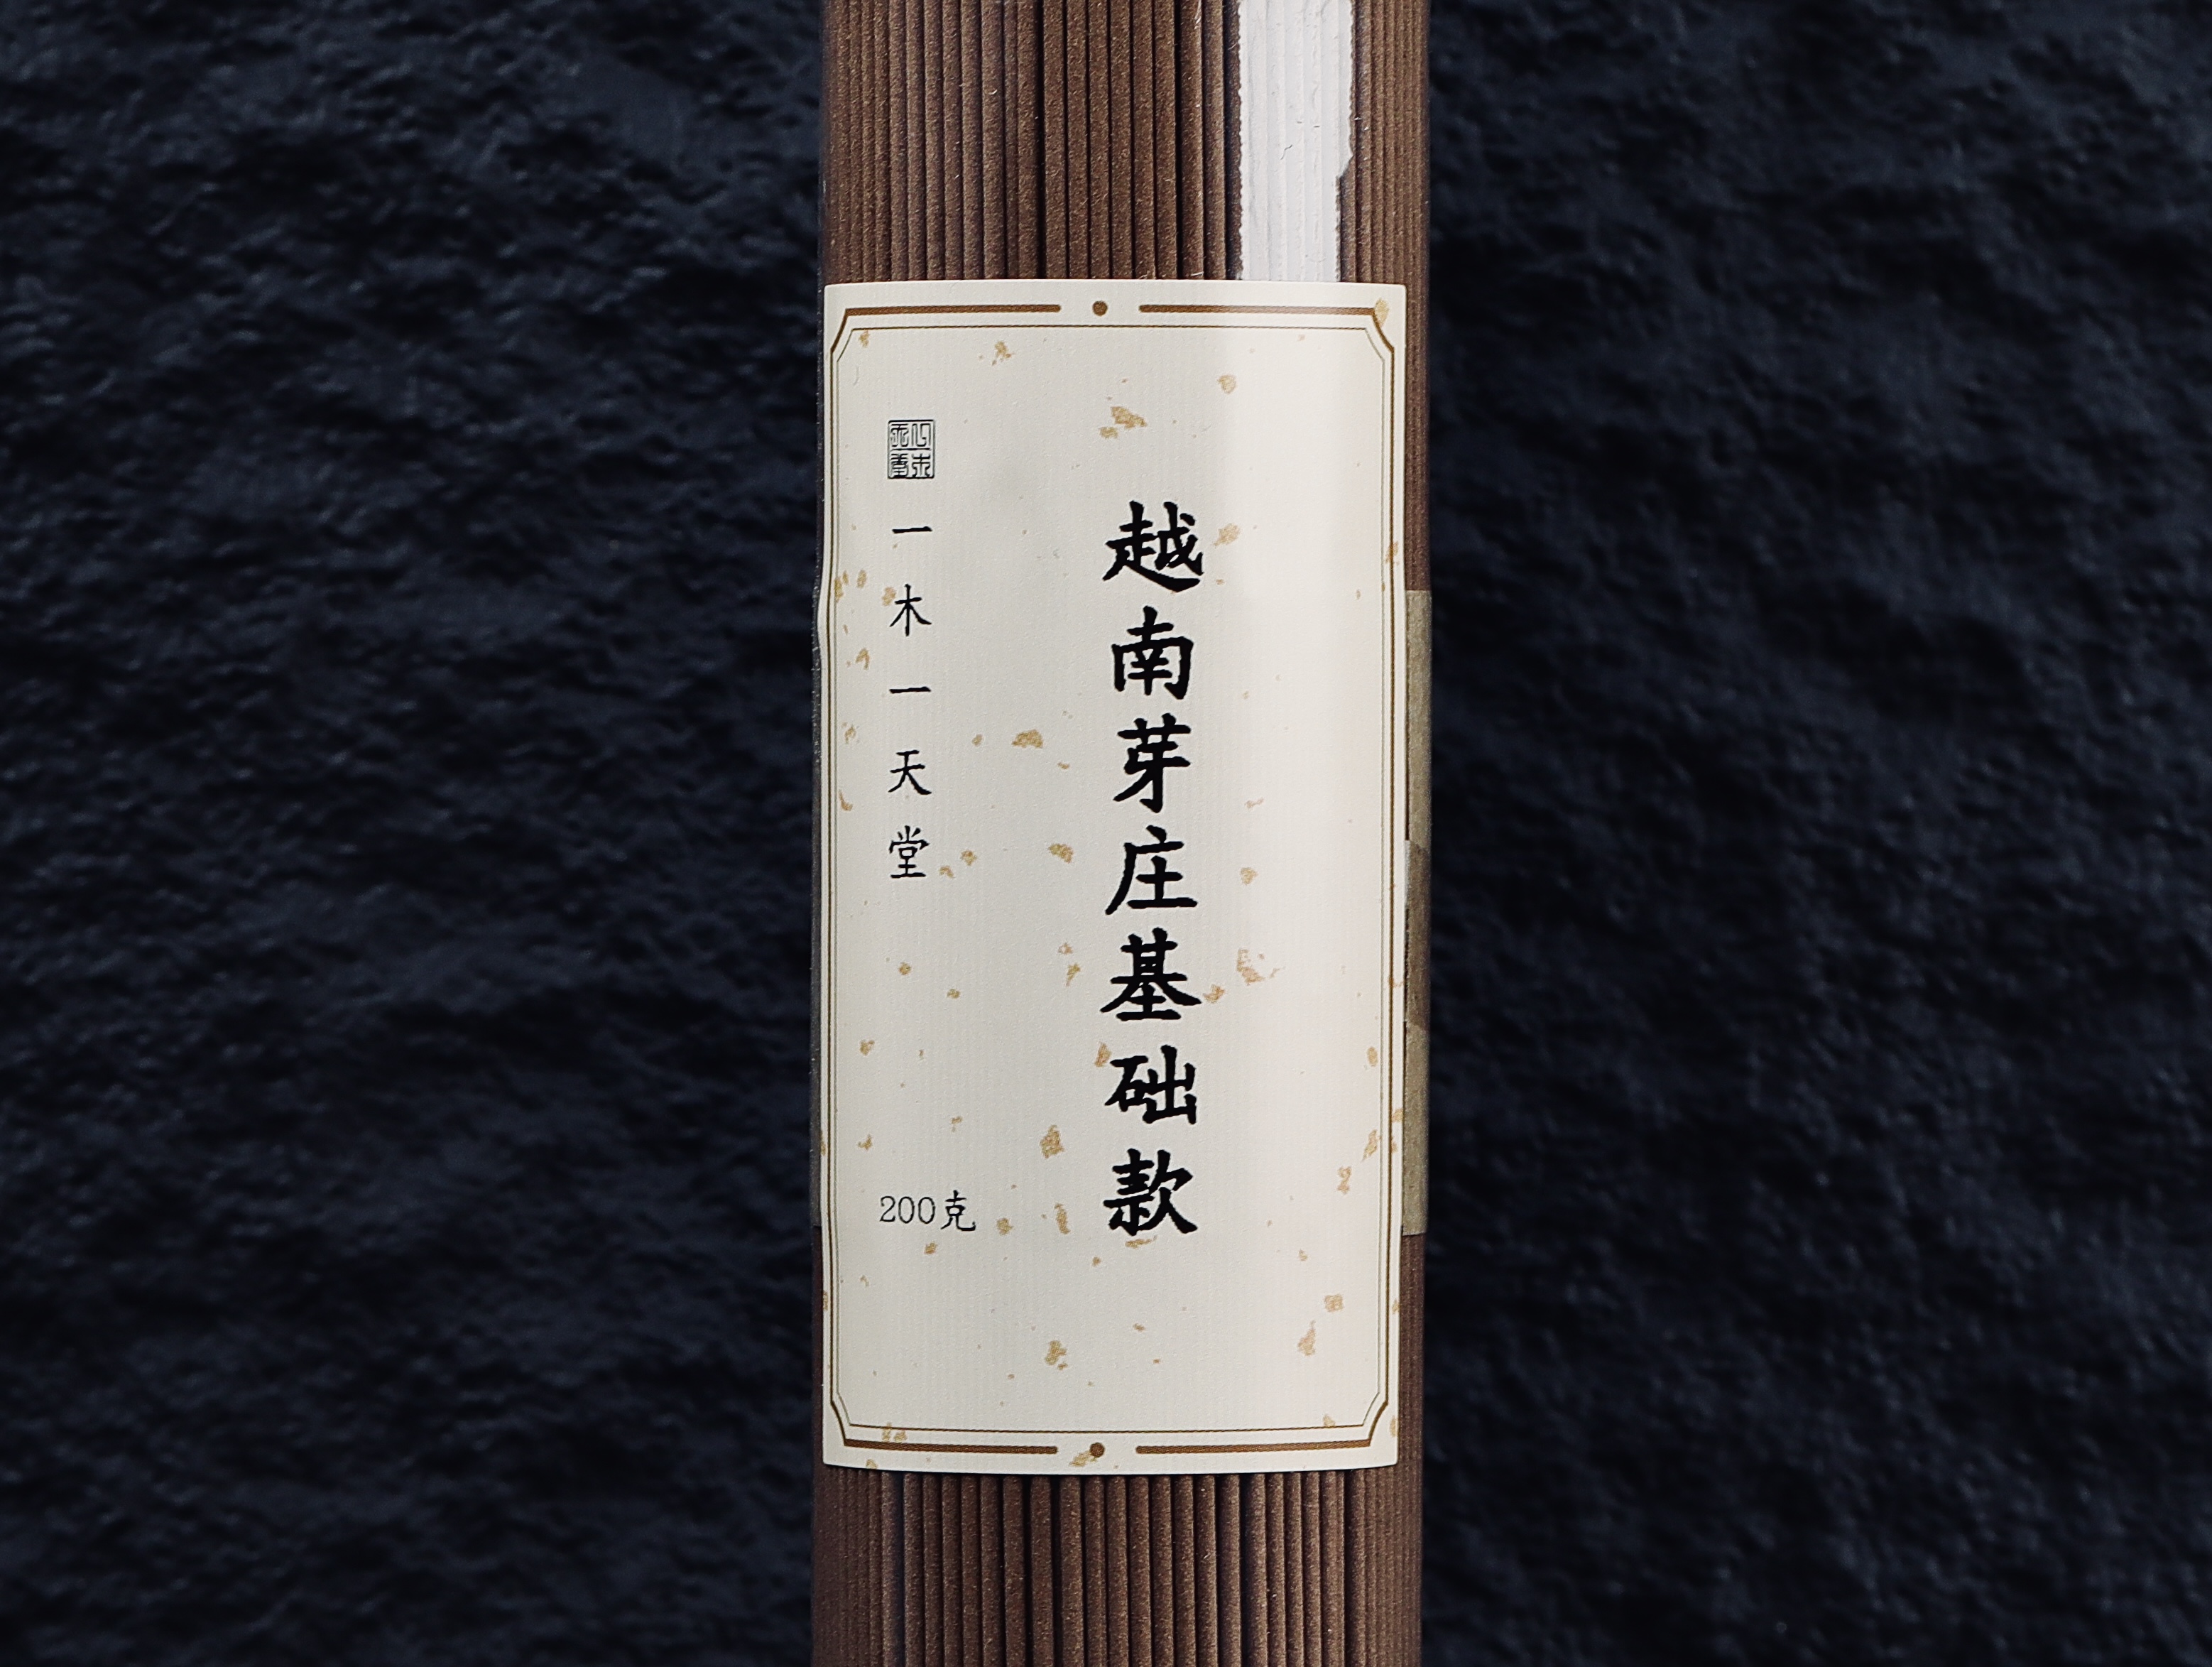 越南芽庄基础款
一木一天堂
200克